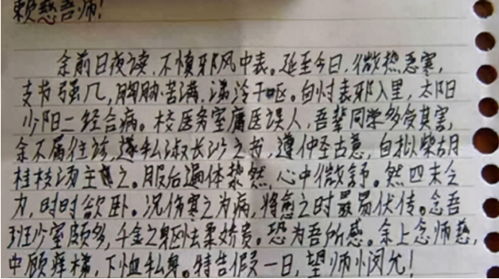 敕慈吾师!
余前日夜读,不慎邪风中表。延至今日,微热恶寒,
支节强几,胸胁苦满,涕泠干呕。自忖表邪入里,太阳
少阳二经合病。校医务室庸医误人,吾辈同学多受其害,
余不屑往诊,遂私淑长沙之书,遵仲圣古意,自拟柴胡
桂枝汤主之。服后遍体漐然,心中微舒。然四末乏
力,时时欲卧。况伤寒之为病,将愈之时最易伏传。念吾
班少室颇多,千金之躯怯柔娇贵。恐为吾所感。余上念师慈,
中顾痒梯,下恤私身。特告假一日,望师悯允!